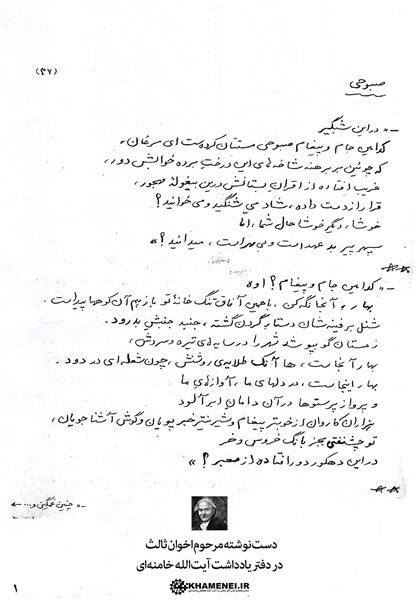 (۳۷)
صبوحی
-» در این شبگیر
کدامین جام و پیغام صبوحی مستتان کرده‌ست ای مرغان،
که چونین بر برهنه شاخه‌های این درختِ برده خوابش دور،
غریب افتاده از اقرانِ بستانش درین بیغولهٔ مهجور،
قرار از دست داده، شاد می‌شنگید و می‌خوانید؟
خوشا، دیگر خوشا حالِ شما، اما
سپهرِ پیر بد عهد است و بی‌مهر است، میدانید؟ «
-» کدامین جام و پیغام؟ اوه
بهار، آنجا نگه کن، با همین آفاق تنگ خانهٔ تو باز هم آن کوهها پیداست.
شنلِ برفینه‌شان دستارِ گردن گشته، جنبد جنبش بدرود.
زمستان گو بپوشد شهر را در سایه‌های تیره و سردش،
بهار آنجاست، ها آنک طلایهٔ روشنش، چون شعله‌ای در دود.
بهار اینجاست، در دلهای ما، آوازهای ما
و پرواز پرستوها در آن دامانِ ابر آلود
هزاران کاروان از خوبتر پیغام و شیرینتر خبر پویان و گوشِ آشنا جویان،
تو چشنفتی بجز بانگ خروس و خر
در این دهکورِ دور افتاده از معبر؟ «
-» چنین غمگین و...
دست‌نوشته مرحوم اخوان ثالث
در دفتر یادداشت آیت‌الله خامنه‌ای
KHAMENEI.IR
۱